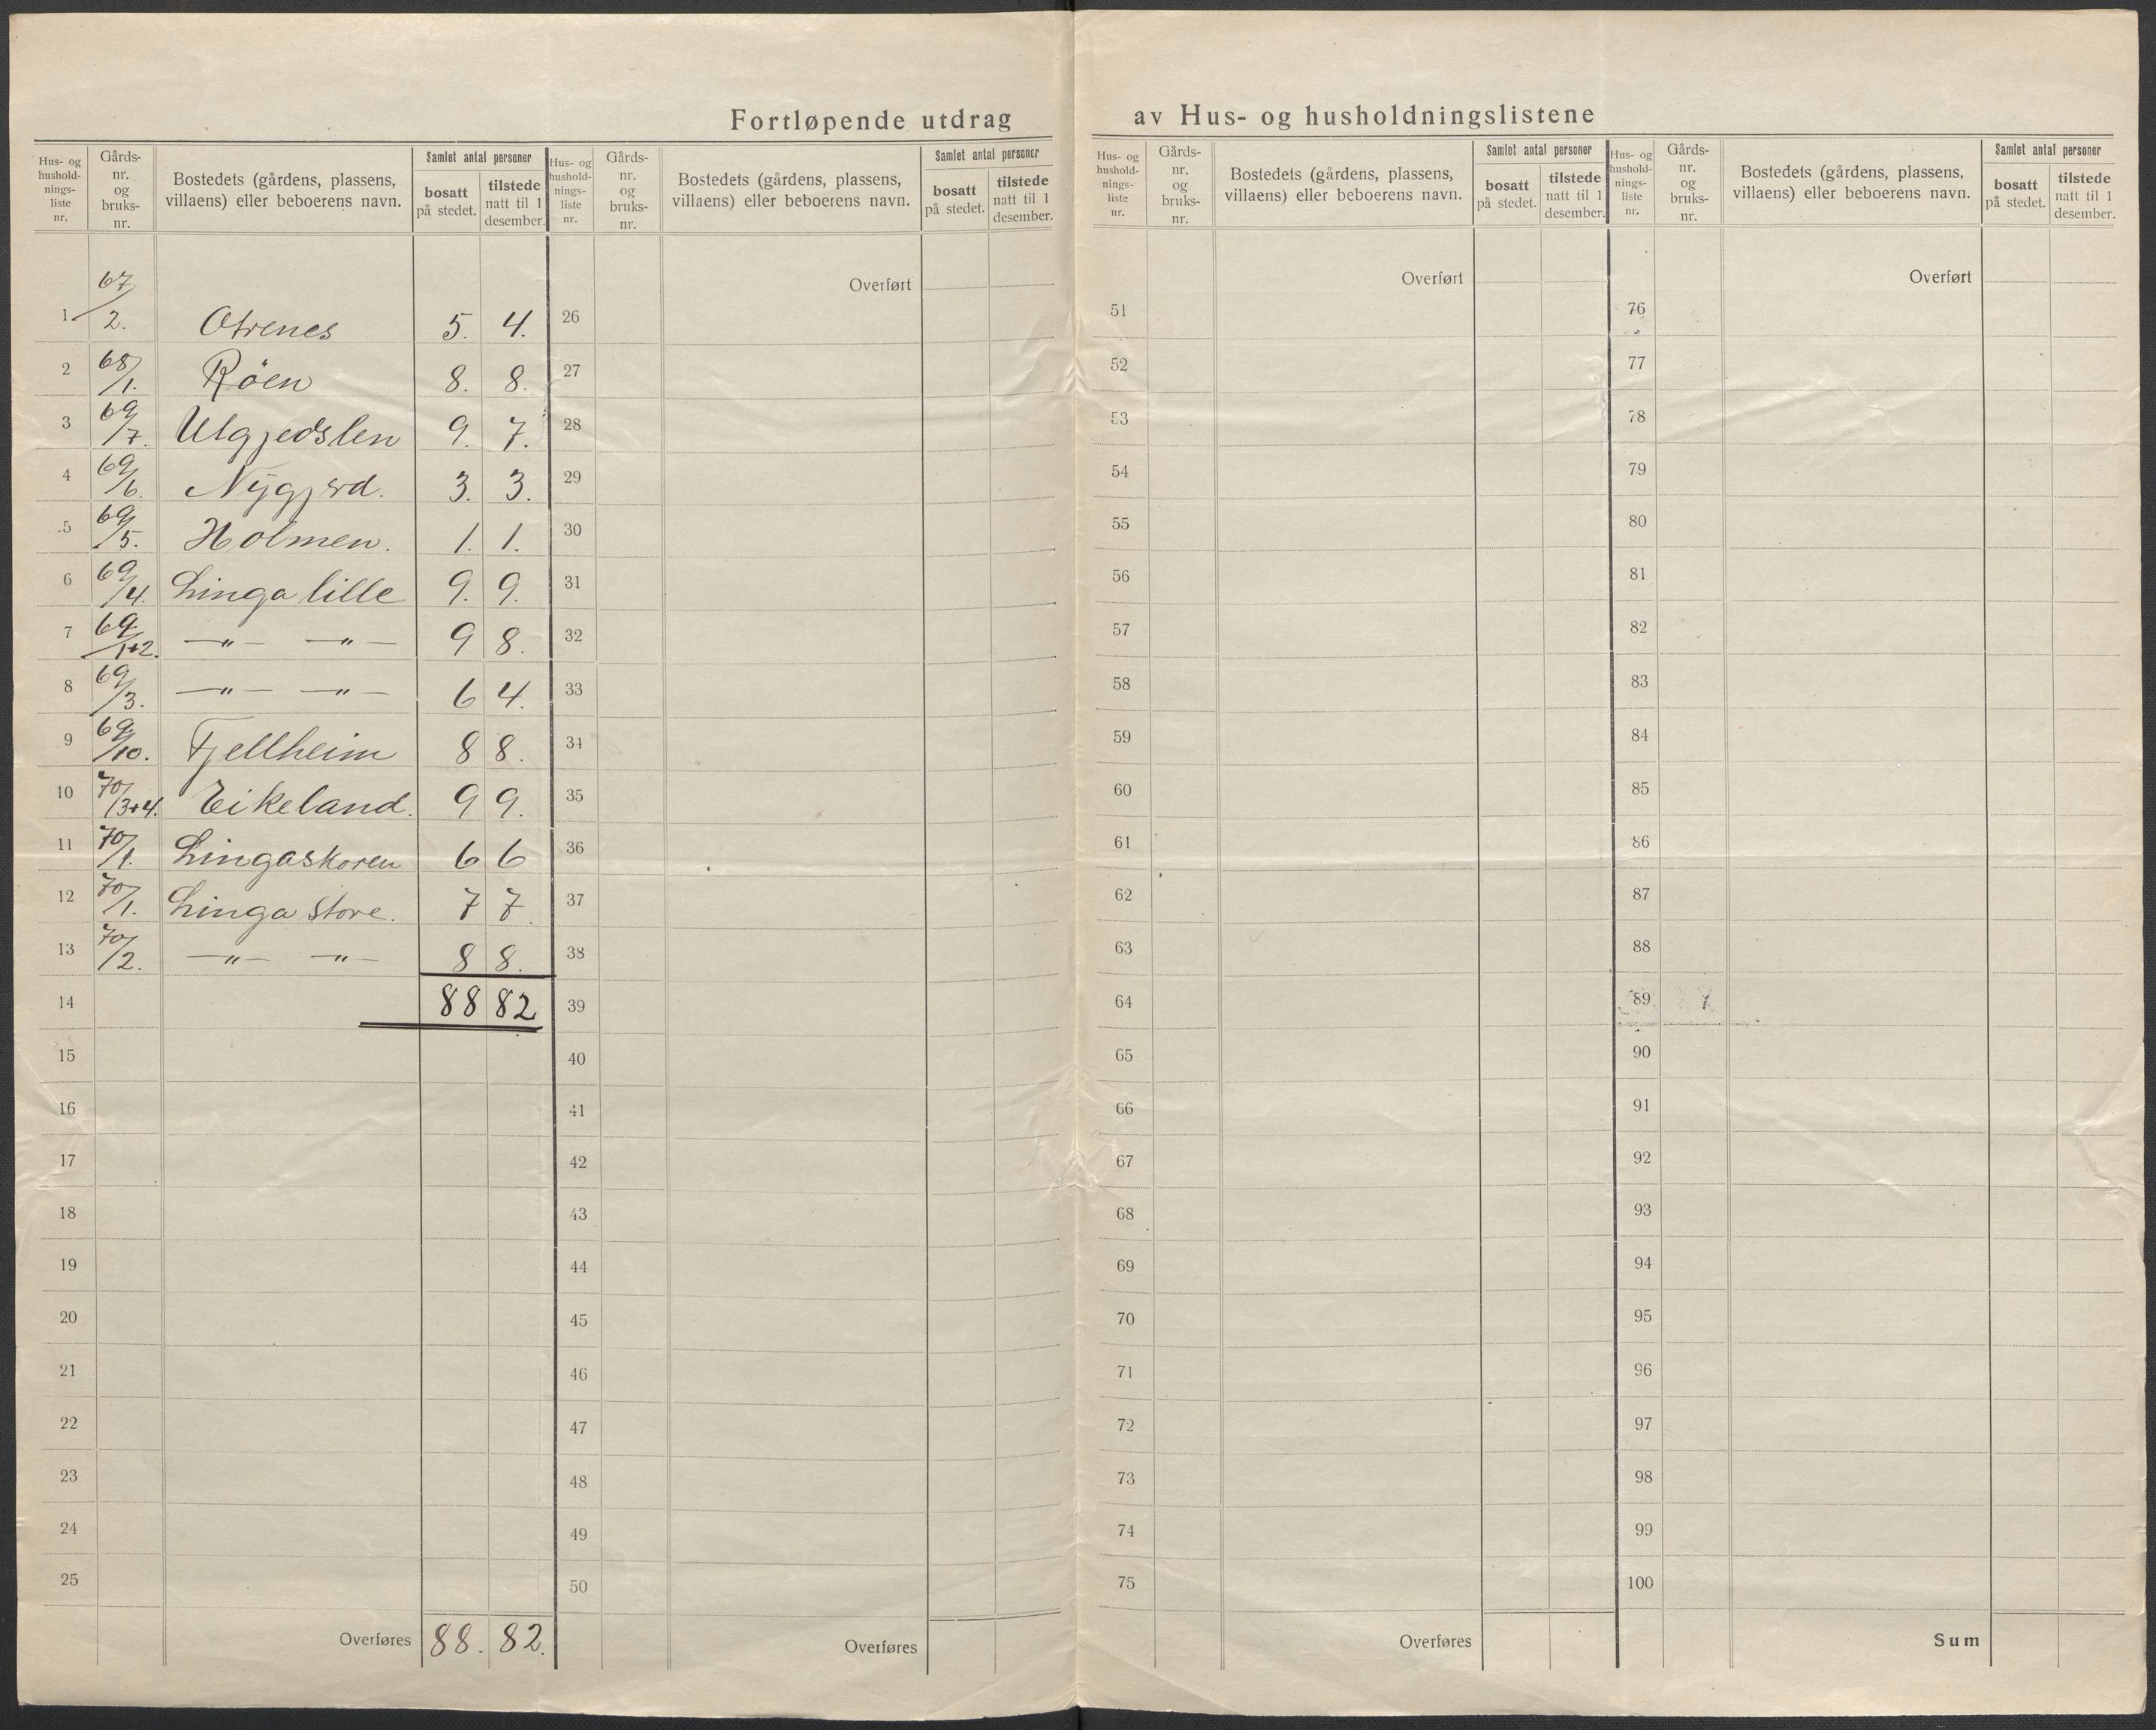 Fortløpende utdrag av Hus- og husholdningslistene
Hus- og hushold-nings-liste nr. | Gårds-nr. og bruks-nr. | Bostedets (gårdens, plassens, villaens) eller beboerens navn. | Samlet antal personer | bosatt på stedet. | tilstede natt til 1 desember.
1 67/2. Otrenes 5. 4.
2 68/1. Röen 8. 8.
3 69/7. Ulgjedslen 9. 7.
4 69/6. Nygjerd. 3. 3.
5 69/5. Holmen. 1. 1.
6 69/4. Linga lille 9. 9.
7 69/1+2. —"— —"— 9 8.
8 69/3. —"— —"— 6 4.
9 69/10. Fjellheim 8 8.
10 70/3+4. Eikeland. 9 9.
11 70/1. Lingaskoren 6 6
12 70/1. Linga store. 7 7.
13 70/2. —"— —"— 8 8.
14 88 82
15
16
17
18
19
20
21
22
23
24
25
Overføres 88. 82.
Hus- og hushold-nings-liste nr. | Gårds-nr. og bruks-nr. | Bostedets (gårdens, plassens, villaens) eller beboerens navn. | Samlet antal personer | bosatt på stedet. | tilstede natt til 1 desember.
Overført
26
27
28
29
30
31
32
33
34
35
36
37
38
39
40
41
42
43
44
45
46
47
48
49
50
Overføres
Hus- og hushold-nings-liste nr. | Gårds-nr. og bruks-nr. | Bostedets (gårdens, plassens, villaens) eller beboerens navn. | Samlet antal personer | bosatt på stedet. | tilstede natt til 1 desember.
Overført
51
52
53
54
55
56
57
58
59
60
61
62
63
64
65
66
67
68
69
70
71
72
73
74
75
Overføres
Hus- og hushold-nings-liste nr. | Gårds-nr. og bruks-nr. | Bostedets (gårdens, plassens, villaens) eller beboerens navn. | Samlet antal personer | bosatt på stedet. | tilstede natt til 1 desember.
Overført
76
77
78
79
80
81
82
83
84
85
86
87
88
89
90
91
92
93
94
95
96
97
98
99
100
Sum